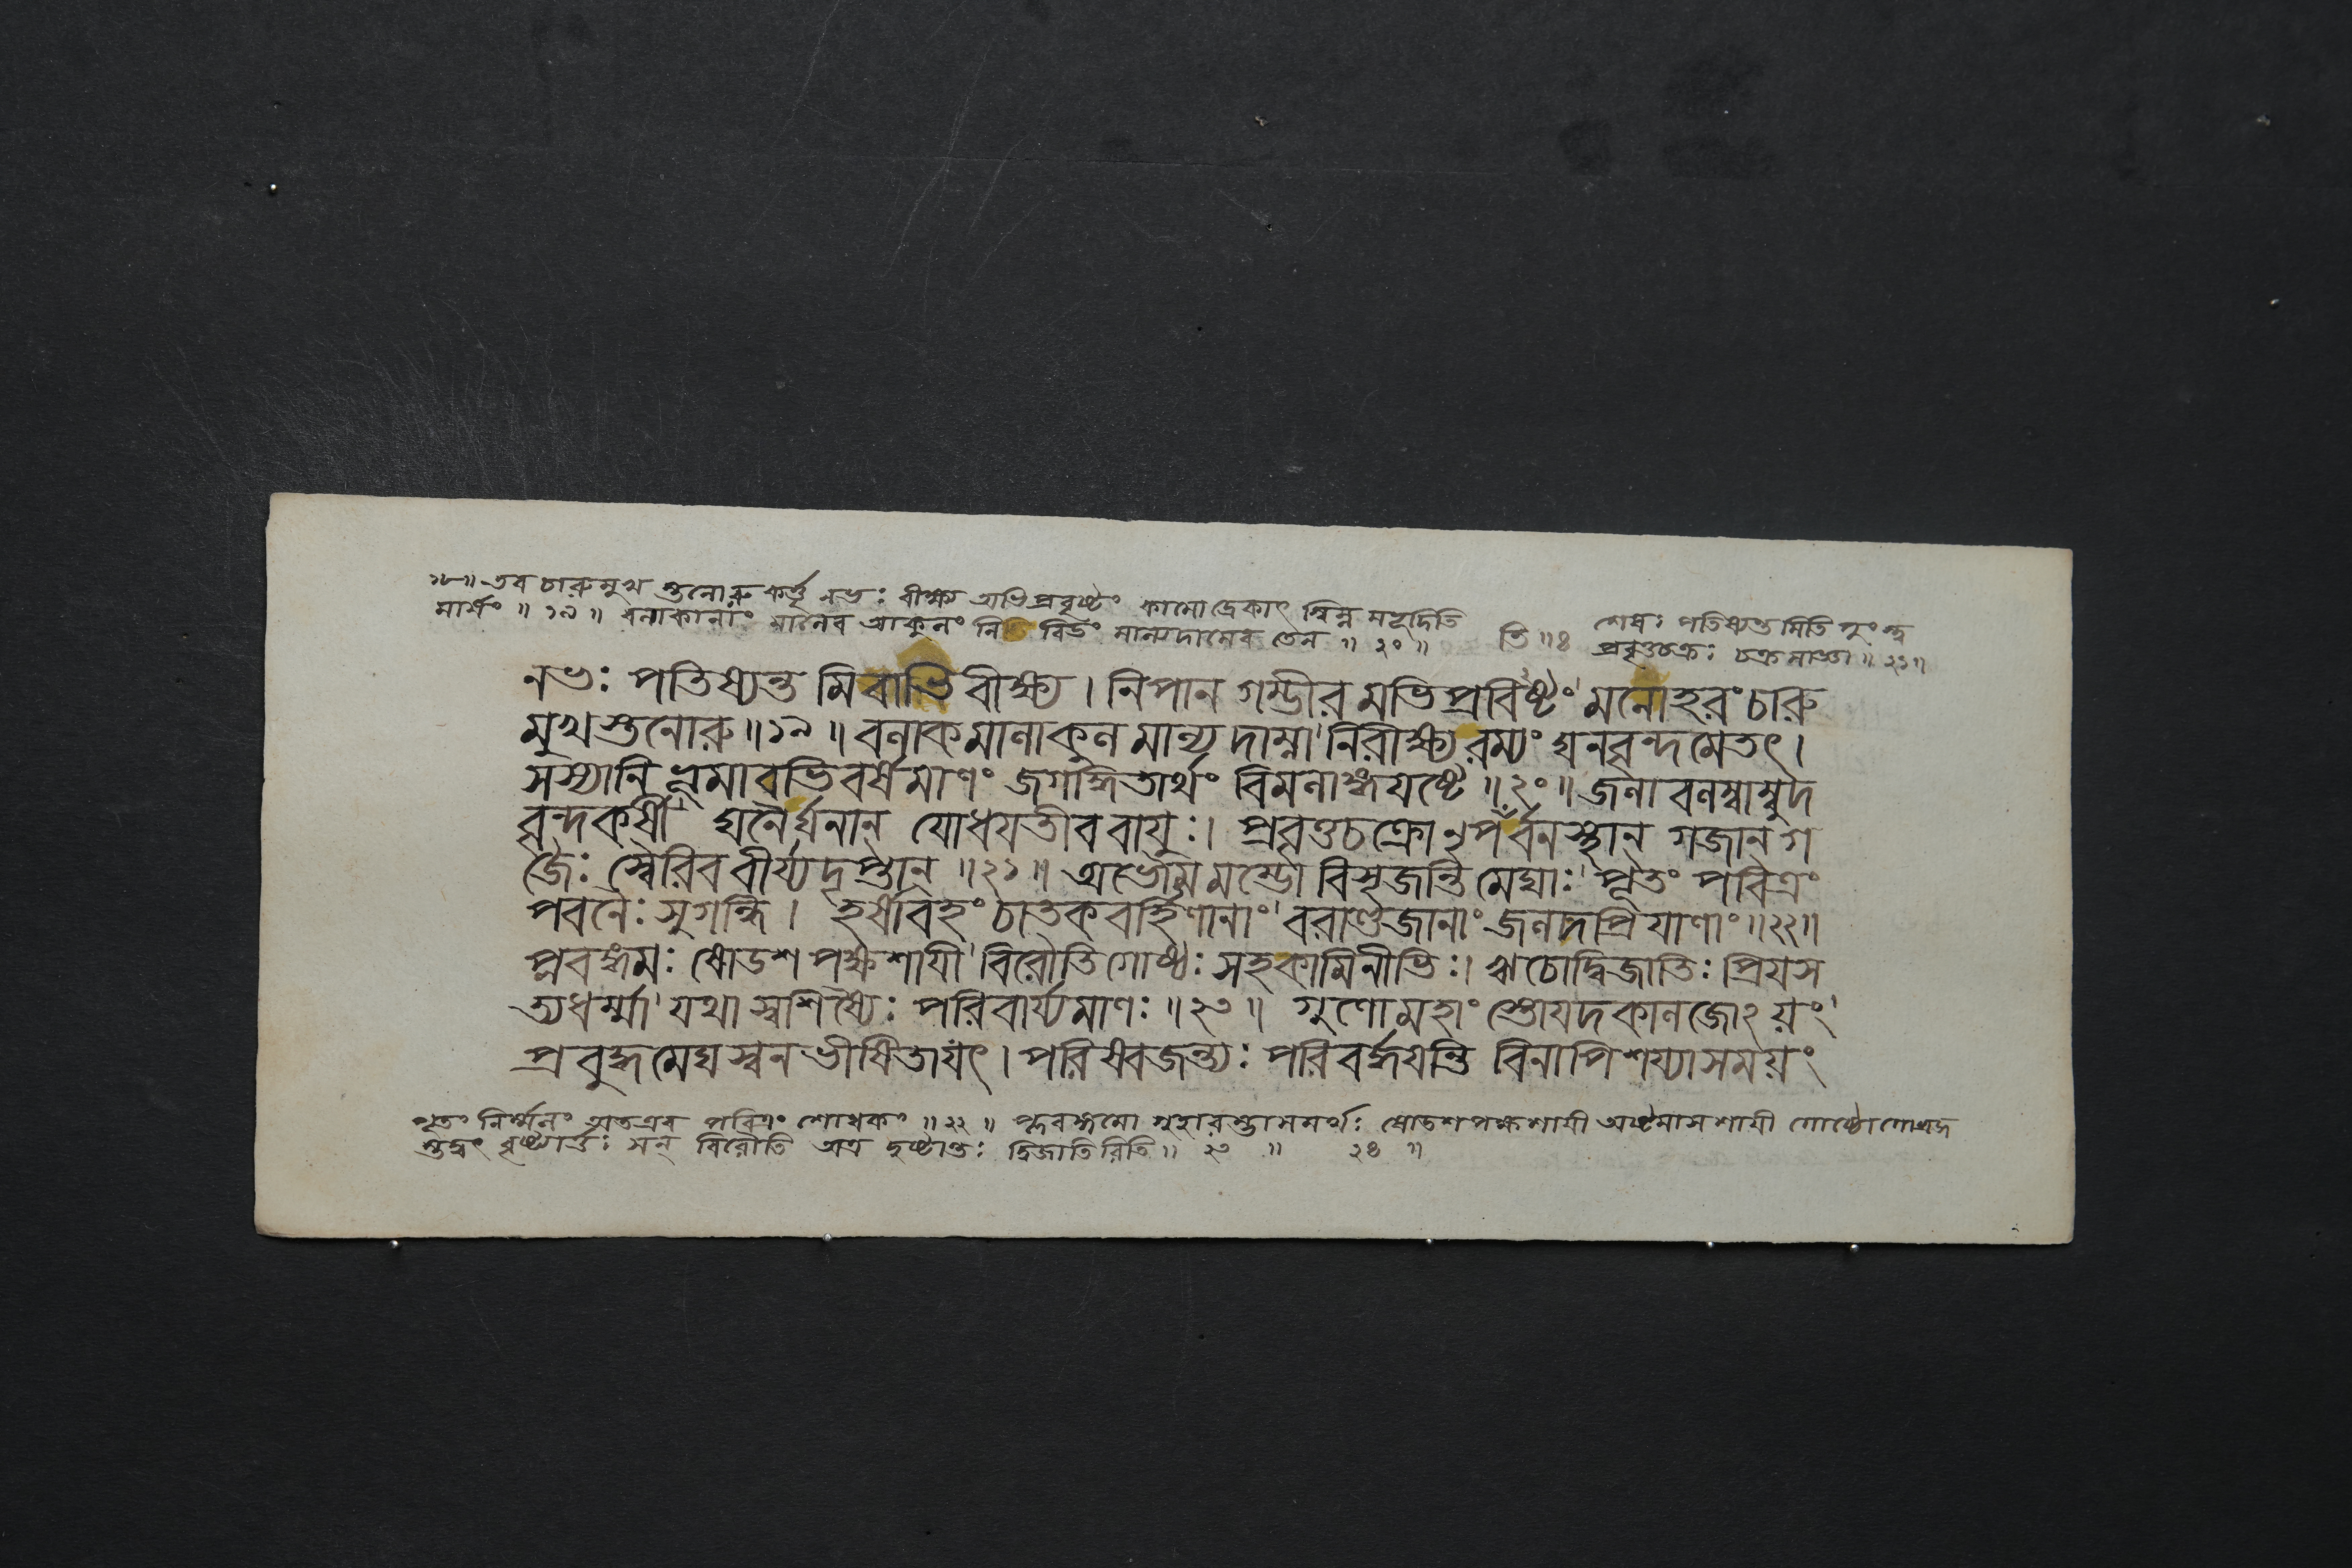 ১৮॥ তব চারুমুখ স্তনোরু কর্ত্তৃ নভঃ বীক্ষ্য অভিপ্রবৃষ্টং কামোদ্রেকাৎ স্বিন্ন মহৃদিতি
মার্থং ॥ ১৯ ॥ বলাকানাং মালৈব আকুলং নিবিডং মাল্যদামেব তেন ॥ ২০ ॥ তি ॥ ৪
শেষঃ পতিষ্যন্ত মিতি পুংস্ত্ব
প্রবৃত্তচক্রঃ চক্র মাজ্ঞা ॥ ২১॥
নভঃ পতিষ্যন্ত মিবাভিবীক্ষ্য । নিপান গম্ভীর মভিপ্রবিষ্টং মনোহরং চারু
মুখস্তনোরু ॥ ১৯ ॥ বলাকমালাকুল মাল্য দাম্না নিরীক্ষ্য রম্যং ঘনবৃন্দমেতৎ ।
সস্যানি ভূমাবভিবর্ষমাণং জগদ্ধিতার্থং বিমলাঙ্গযষ্টে ॥ ২০ ॥ জলাবলম্বাম্বুদ
বৃন্দকর্ষী ঘনৈর্ঘনান্ যোধয়তীব বায়ুঃ । প্রবৃত্তচক্রো নৃপর্ব্বনস্থান্ গজান্ গ
জৈঃ স্বৈরিব বীর্য্যদৃপ্তান্ ॥ ২১ ॥ অভৌমমম্ভো বিসৃজন্তি মেঘাঃ পূতং পবিত্রং
পবনৈঃ সুগন্ধি । হর্ষাবহং চাতক বর্হিণানাং বরাণ্ডজানাং জলদপ্রিয়াণাং ॥ ২২॥
প্লবঙ্গমঃ ষোডশ পক্ষশায়ী বিরৌতি গোষ্ঠঃ সহকামিনীভিঃ । ঋচো দ্বিজাতিঃ প্রিয়স
ত্যধর্ম্মা যথা স্বশিষ্যৈঃ পরিবার্য্যমাণঃ ॥ ২৩ ॥ গুণো মহাং স্তোয়দকালজোঽয়ং
প্রবুদ্ধমেঘস্বন ভীষিতায়ৎ । পরিষ্বজন্ত্যঃ পরিবর্দ্ধয়ন্তি বিনাপি শয্যাসময়ং
পূতং নির্ম্মলং অতএব পবিত্রং শোধকং ॥ ২২ ॥ প্লবঙ্গমো গুহারম্ভাসমর্থঃ ষোডশপক্ষশায়ী অষ্টমাসশায়ী গোষ্ঠো গোব্রজ
স্তদ্বৎ বৃষ্ট্যার্ত্তঃ সন্ বিরৌতি অত্র দৃষ্টান্তঃ দ্বিজাতিরিতি ॥ ২৩ ॥ ২৪ ॥